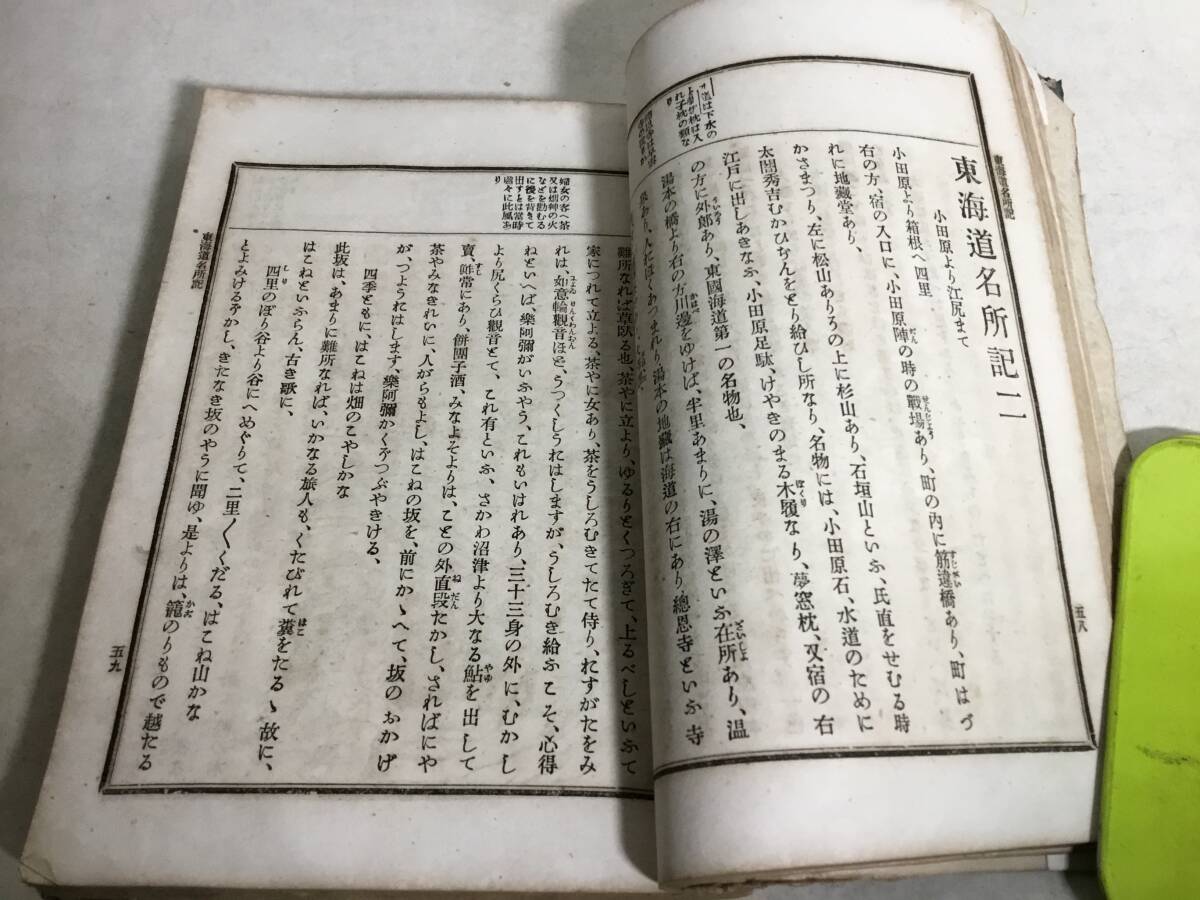 東海道名所記
東海道名所記二
小田原より江尻まて
小田原より箱根へ四里
右の方、宿の入口に、小田原陣の時の戰場あり、町の內に筋違橋あり、町はづ
れに地藏堂あり、
かさまつり、左に松山ありろの上に杉山あり、石垣山といふ、氏直をせむる時
太閤秀吉むかひぢんをとり給ひし所なり、名物には、小田原石、水道のために
江戸に出しあきなふ、小田原足駄、けやきのまる木履なり、夢窓枕、又宿の右
の方に外郎あり、東國海道第一の名物也、
湯本の橋より右の方川邊をゆけば、半里あまりに、湯の澤といふ在所あり、溫
泉あり、人おほくあつまれり、湯本の地藏は海道の右にあり、總恩寺といふ寺
五八
婦女の客へ茶
又は烟艸の火
などを勸むる
に後を背きて
出すとは當時
處々に此風あ
り
難所なれば草臥る也、茶やに立より、ゆるりとくつろぎて、上るべしといふて
家につれて立よる、茶やに女あり、茶をうしろむきてたて侍り、れすがたをみ
れは、如意輪觀音ほど、うつくしうれはしますが、うしろむき給ふこそ、心得
ねといへば、樂阿彌がいふやう、これもいはれあり、三十三身の外に、むかし
より尻くらひ觀音とて、これ有といふ、さかわ沼津より大なる鮎を出して
賣、鮓常にあり、餠團子酒、みなよそよりは、ことの外直段たかし、さればにや
茶やみなきれいに、人がらもよし、はこねの坂を、前にかゝへて、坂のおかげ
が、つようれはします、樂阿彌かくぞつぶやきける、
四季ともに、はこねは畑のこやしかな
此坂は、あまりに難所なれば、いかなる旅人も、くたびれて糞をたるゝ故に、
はこねといふらん、古き歌に、
四里のぼり谷より谷にへめぐりて、二里〱くだる、はこね山かな
とよみけるぞかし、きたなき坂のやうに聞ゆ、是よりは、籠のりもので越たる
東海道名所記
五九